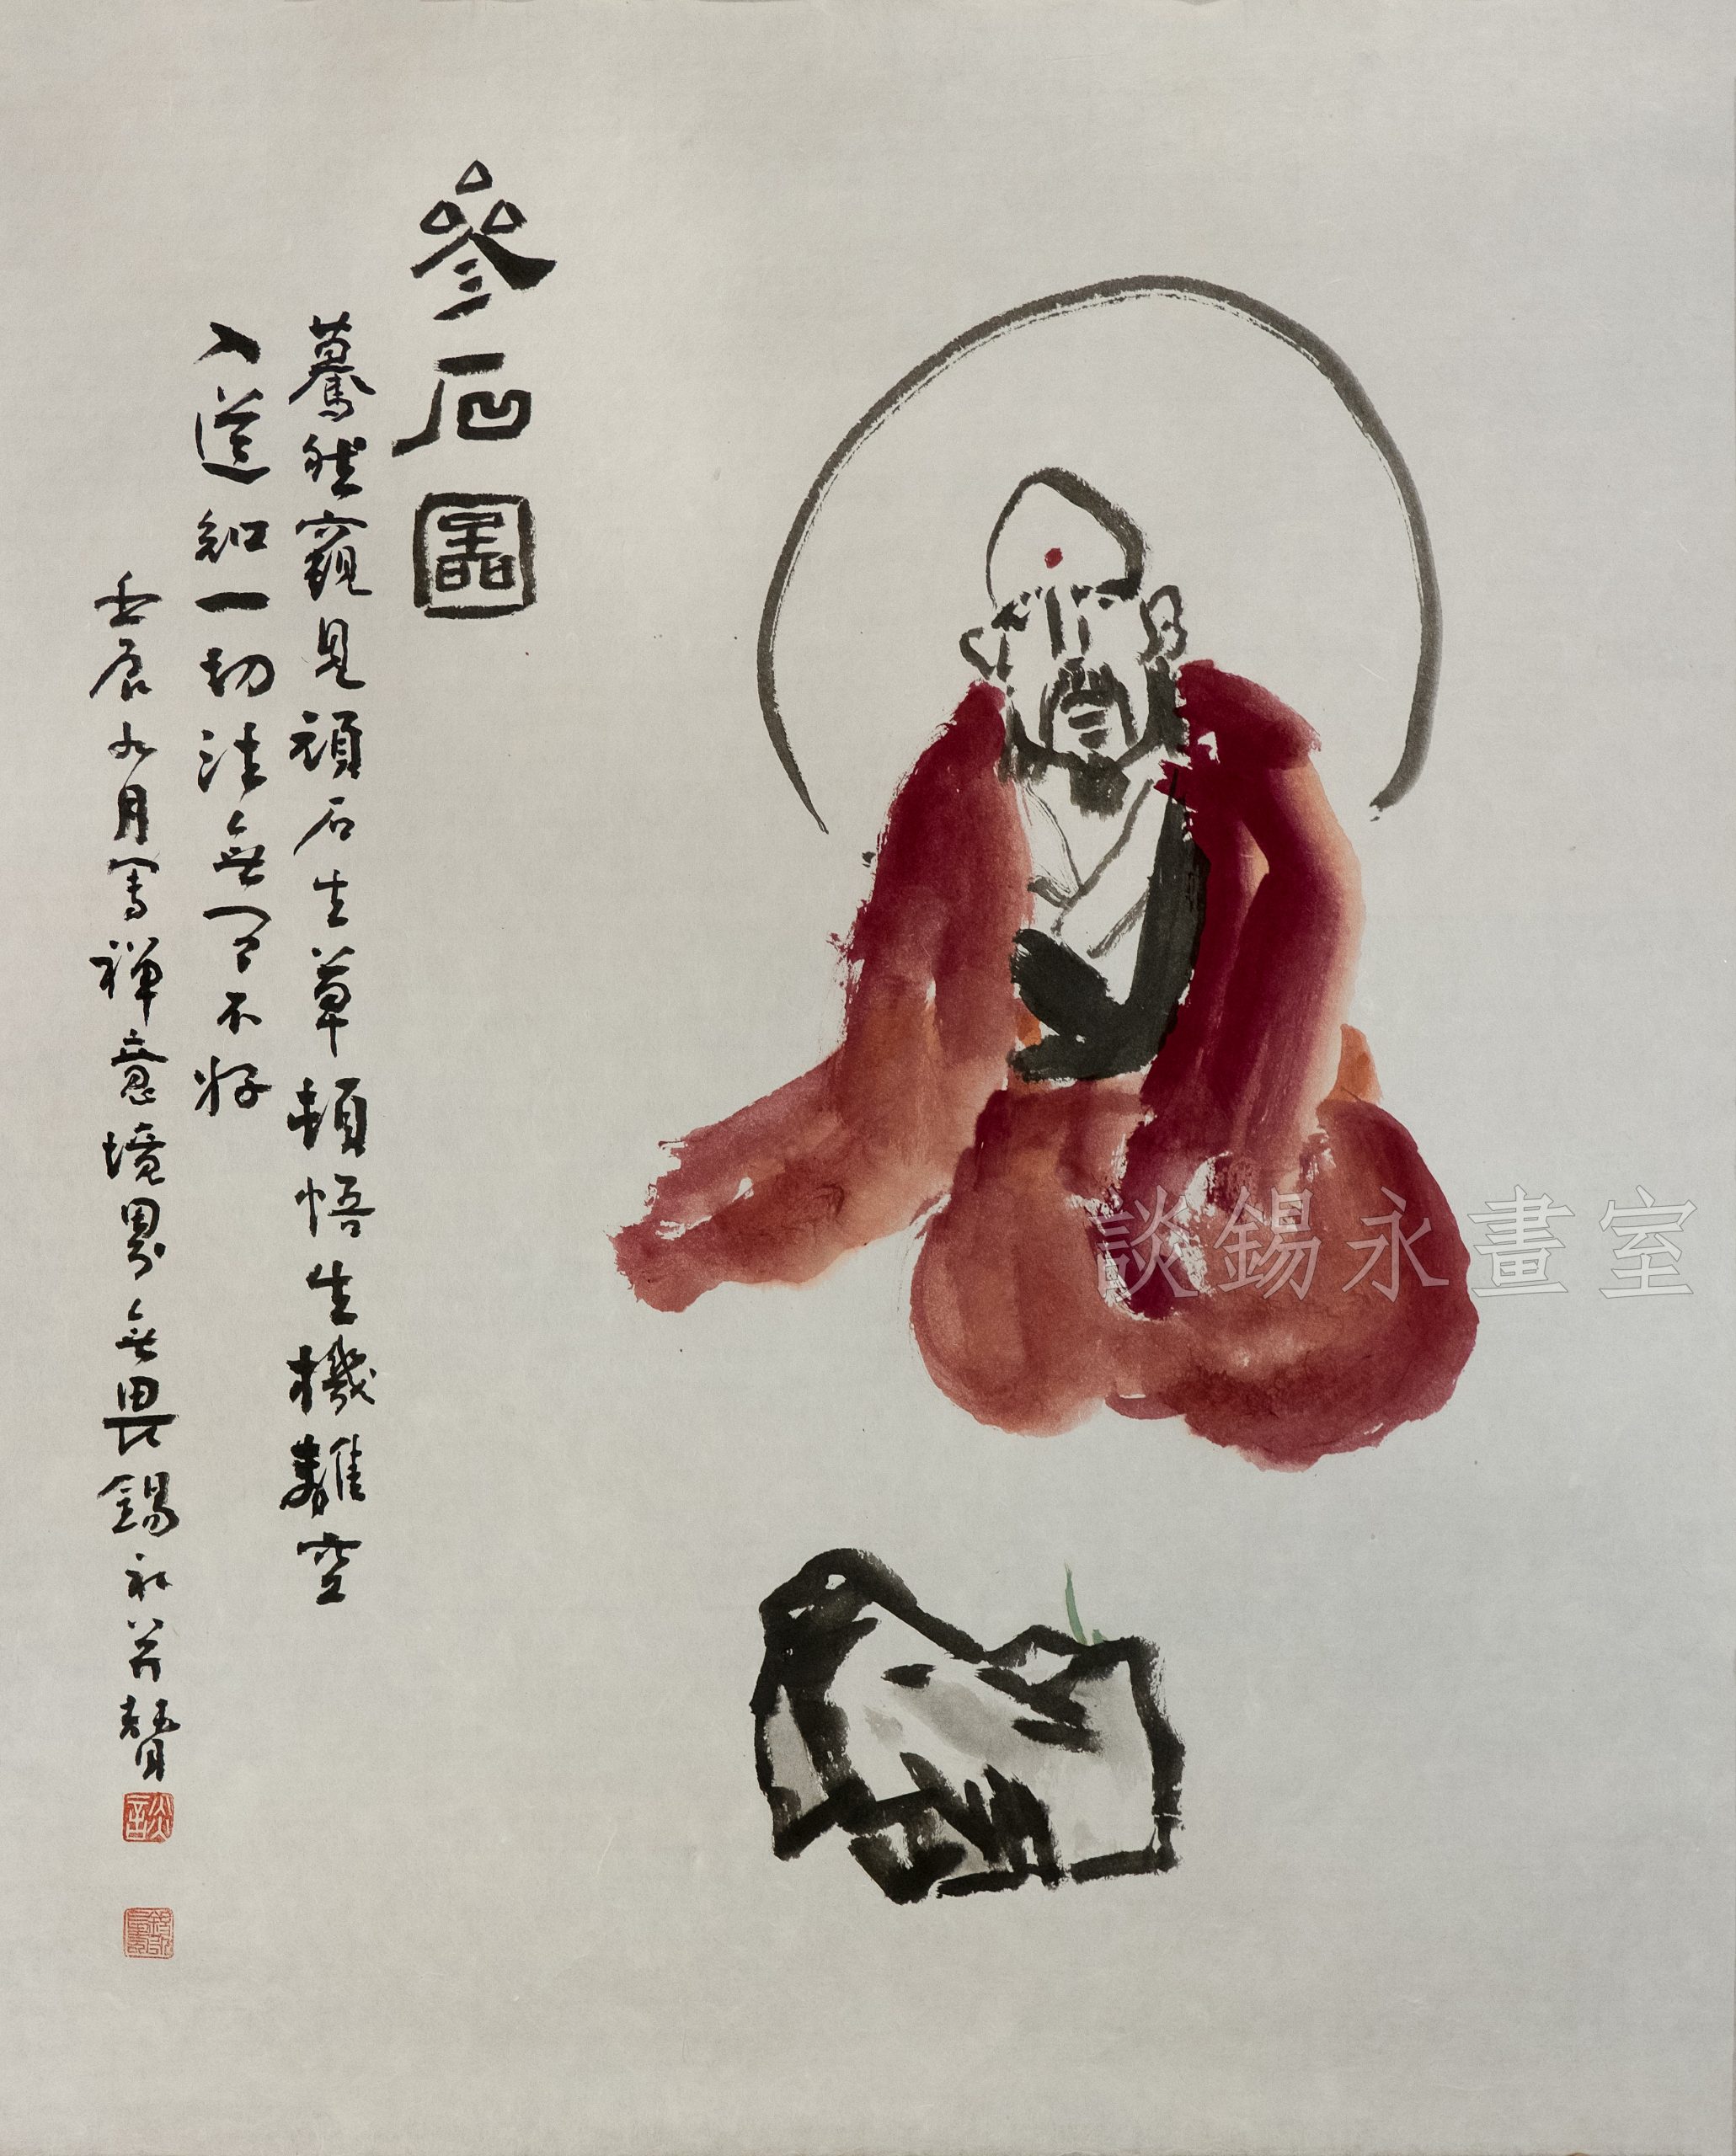 參石圖
驀然窺見頑石生草頓悟生機離空
入道知一切法無可不好
壬辰九月寫禪意境界無畏錫永并贊
談
談錫永畫室